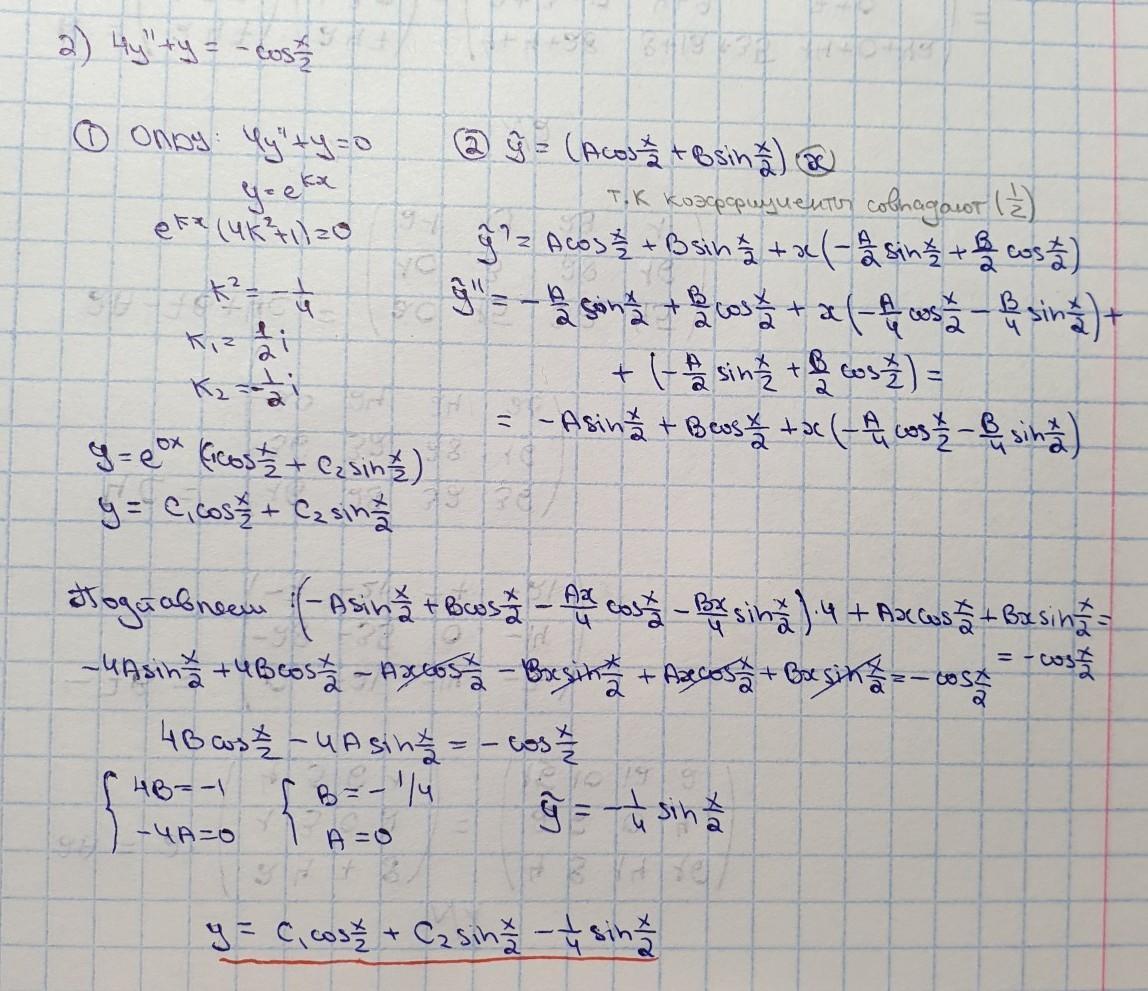 2) 4y" + y = -cos x/2
① ОЛДУ: 4y" + y = 0
y = e^{kx}
e^{kx}(4k² + 1) = 0
k² = -1/4
k₁ = 1/2 i
k₂ = -1/2 i
y = e^{0x} (C₁cos x/2 + C₂ sin x/2)
y = C₁cos x/2 + C₂ sin x/2
② ỹ = (Acos x/2 + Bsin x/2) x
т.к коэффициенты совпадают (1/2)
ỹ' = Acos x/2 + Bsin x/2 + x(-A/2 sin x/2 + B/2 cos x/2)
ỹ" = -A/2 sin x/2 + B/2 cos x/2 + x(-A/4 cos x/2 - B/4 sin x/2) +
+ (-A/2 sin x/2 + B/2 cos x/2) =
= -Asin x/2 + Bcos x/2 + x(-A/4 cos x/2 - B/4 sin x/2)
Подставляем: (-Asin x/2 + Bcos x/2 - Ax/4 cos x/2 - Bx/4 sin x/2)·4 + Axcos x/2 + Bxsin x/2 =
= -cos x/2
-4Asin x/2 + 4Bcos x/2 - Axcos x/2 - Bxsin x/2 + Axcos x/2 + Bxsin x/2 = -cos x/2
4Bcos x/2 - 4Asin x/2 = -cos x/2
{ 4B = -1 { B = -1/4
-4A = 0 A = 0
ỹ = -1/4 sin x/2
y = C₁cos x/2 + C₂ sin x/2 - 1/4 sin x/2